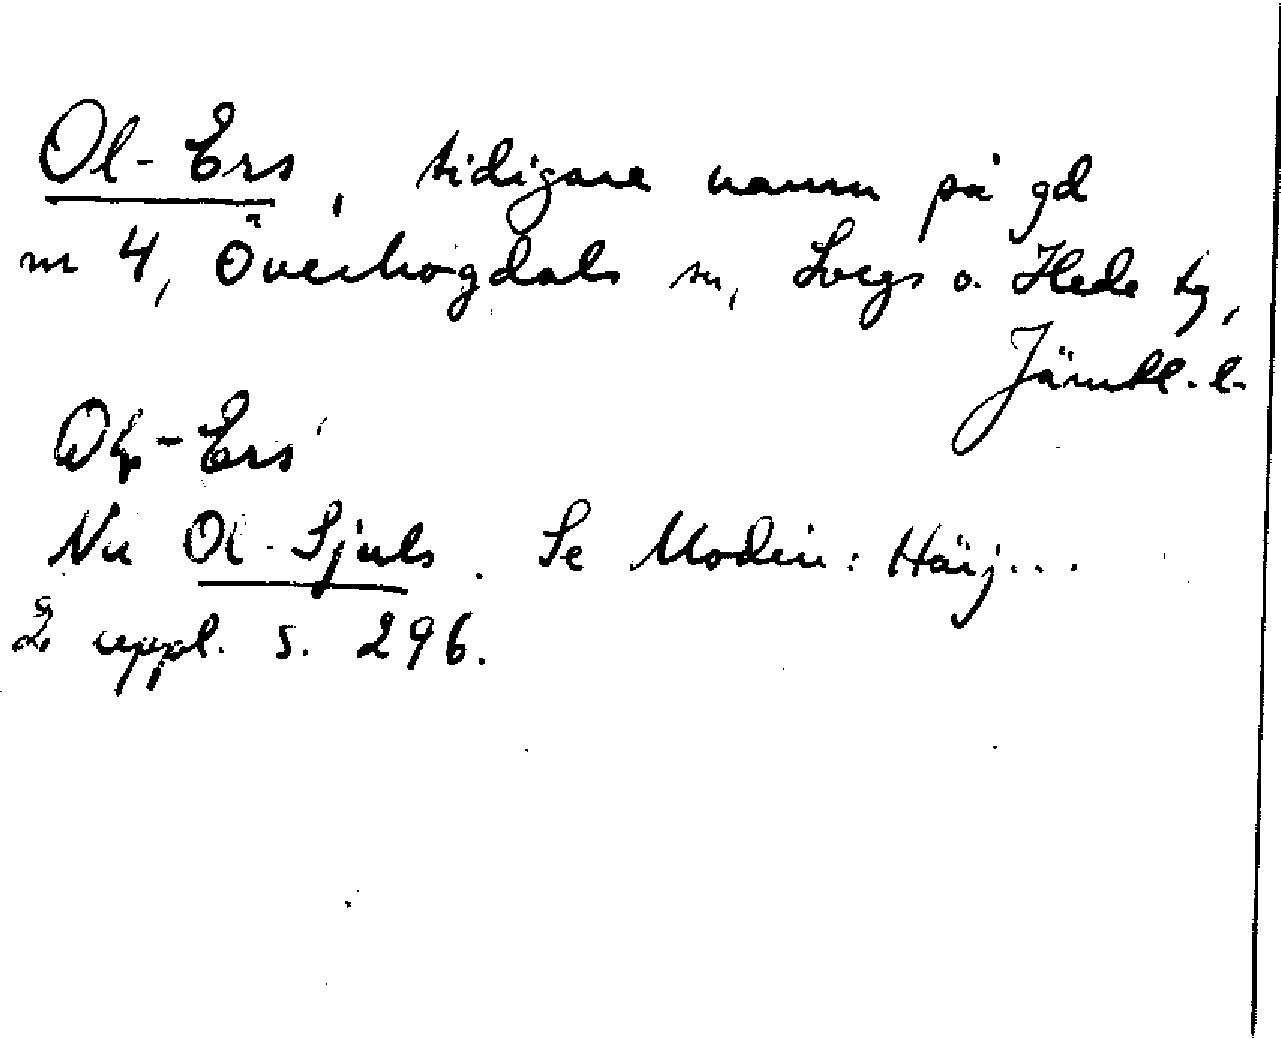 Ol-Ers, tidigare namn på gd
nr 4, Överhogdals sn, Svegs o. Hede tg,
Jämtl. l.
-Ers
Nu Ol-Sjuls. Se Modin: Härj...
2 uppl. s. 296.